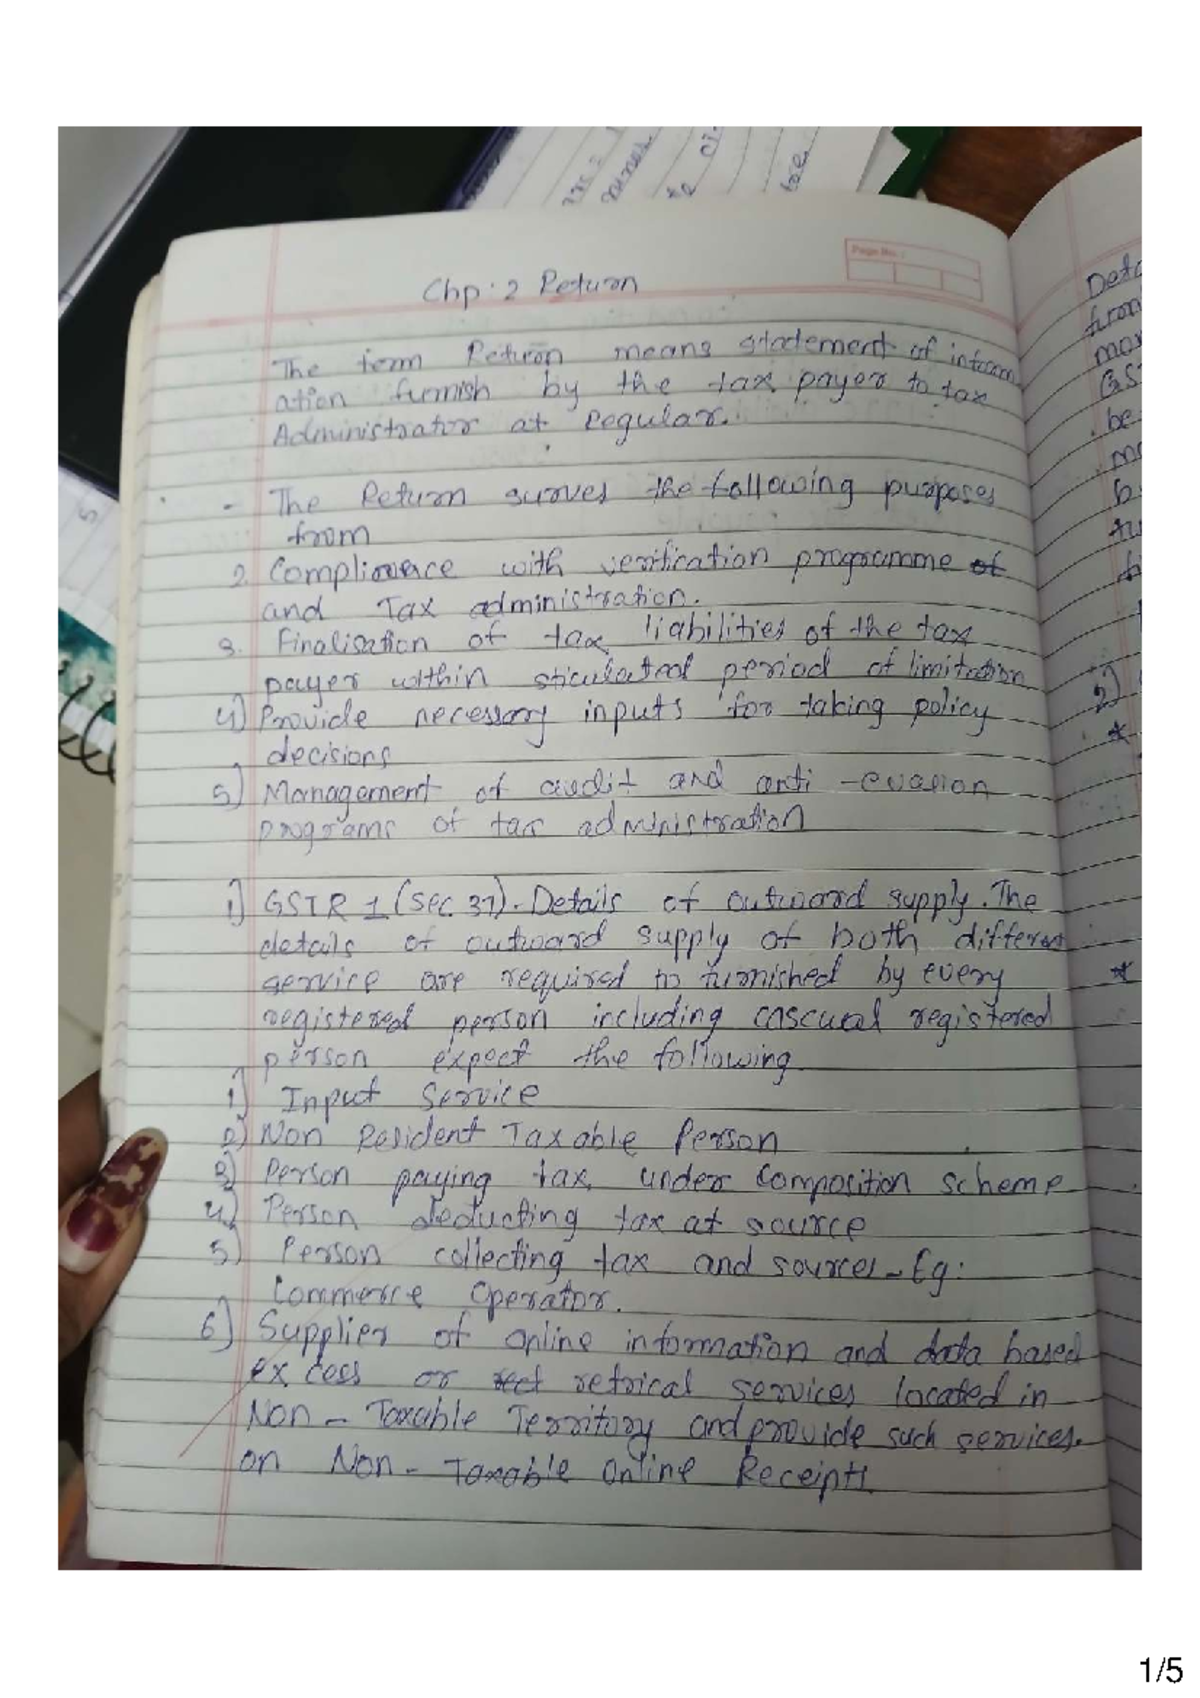 Page No. :
Chp. 2 Return
The term Return means statement of inform
ation furnish by the tax payer to tax
Administrator at Regular.
- The Return surves the following purposes
from
2. Complinece with verification programme of
and Tax administration.
3. Finalisation of tax liabilities of the tax
payer within sticulated period of limitation
4) Provide necessary inputs for taking policy
decisions
5) Management of audit and anti - evasion
programs of tax administration
1) GSTR 1 (Sec 37). Details of outward supply. The
details of outward supply of both different
service are required to furnished by every
registered person including cascual registered
person expect the following
1) Input Service
2) Non Resident Taxable Person
3) Person paying tax under Composition scheme
4) Person deducting tax at source
5) Person collecting tax and sources - Eg:
Commerce Operator.
6) Supplier of online information and data based
excess or retrical services located in
Non - Taxable Territory and provide such services.
on Non - Taxable Online Receipti
Deta
from
mor
GST
be
mo
2)
*
*
1/5